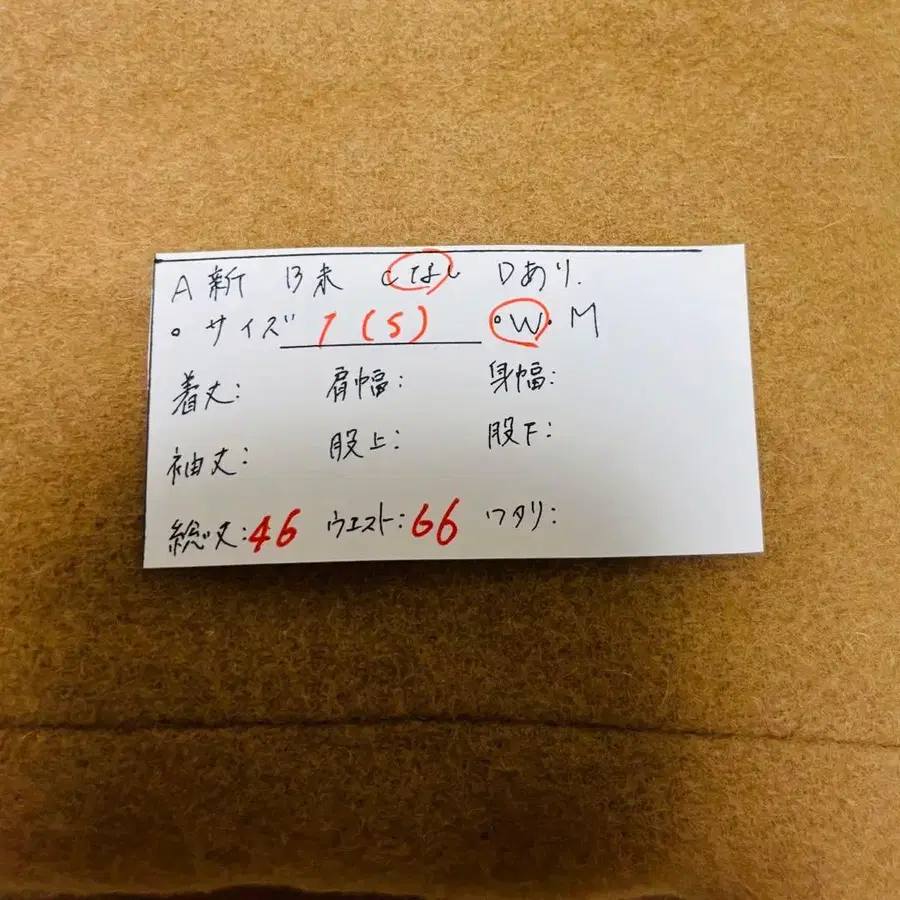 A新 B未 Cなし Dあり.
○サイズ 1(S) ○W・M
着丈: 肩幅: 身幅:
袖丈: 股上: 股下:
総丈:46 ウエスト:66 ワタリ: